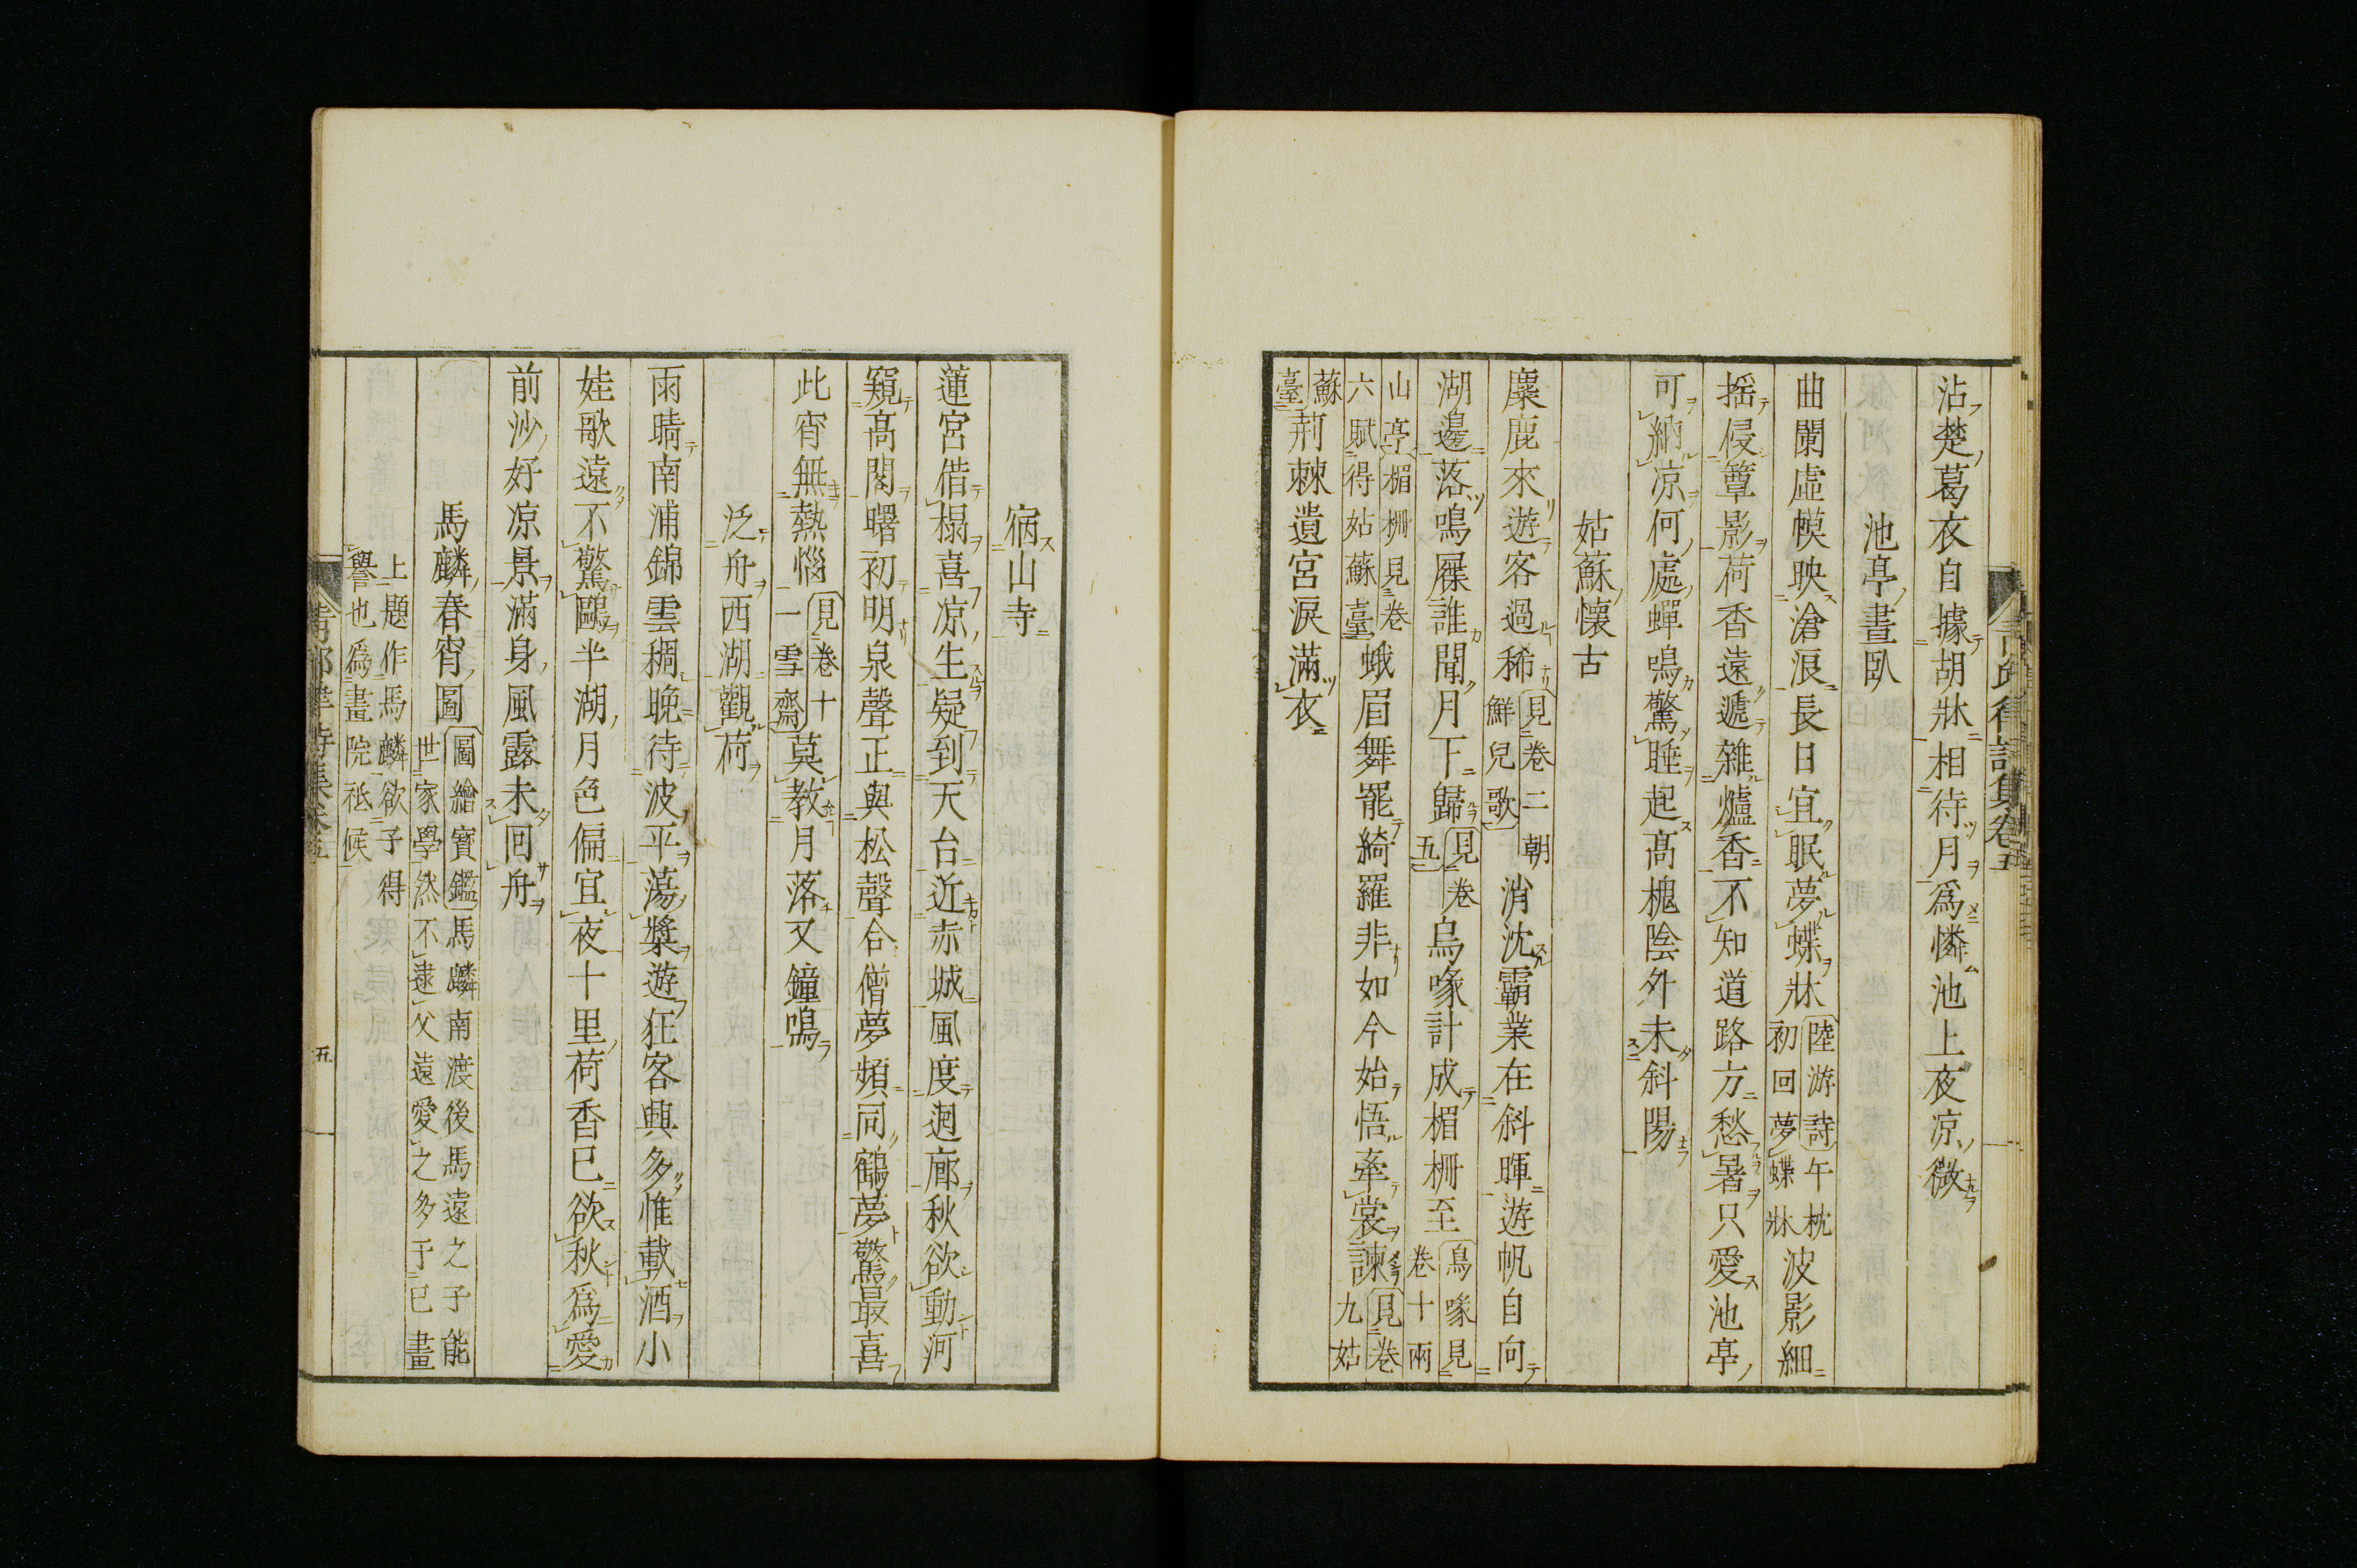 沾楚葛衣自據胡牀相待月爲憐池上夜凉微
池亭晝臥
曲闌虛幙映滄浪長日宜眠夢蝶牀
陸游詩午枕
初回夢蝶牀
波影細
揺侵簟影荷香遠遞雜爐香不知道路方愁暑只愛池亭
可納凉何處蟬鳴驚睡起髙槐陰外未斜陽
姑蘇懷古
麋鹿來遊客過稀
見卷二朝
鮮兒歌
消沈霸業在斜暉遊帆自向
湖邊落鳴屧誰聞月下歸
見卷
五
烏喙計成楣栅至
鳥喙見
卷十兩
山亭楣栅見卷
六賦得姑蘇臺
蛾眉舞罷綺羅非如今始悟牽裳諫
見卷
九姑
蘇
臺
荊棘遺宮淚滿衣
宿山寺
蓮宮借榻喜凉生疑到天台近赤城風度迴廊秋欲動河
窺髙閣曙初明泉聲正與松聲合僧夢頻同鶴夢驚最喜
此宵無熱惱
見卷十
一雪齋
莫教月落又鐘鳴
泛舟西湖觀荷
雨晴南浦錦雲稠晚待波平蕩槳遊狂客興多惟載酒小
娃歌遠不驚鷗半湖月色偏宜夜十里荷香已欲秋爲愛
前沙好凉景滿身風露未回舟
馬麟春宵圖
圖繪寳鑑馬麟南渡後馬遠之子能
世家學然不逮父遠愛之多于已畫
上題作馬麟欲子得
譽也爲畫院祗候
五